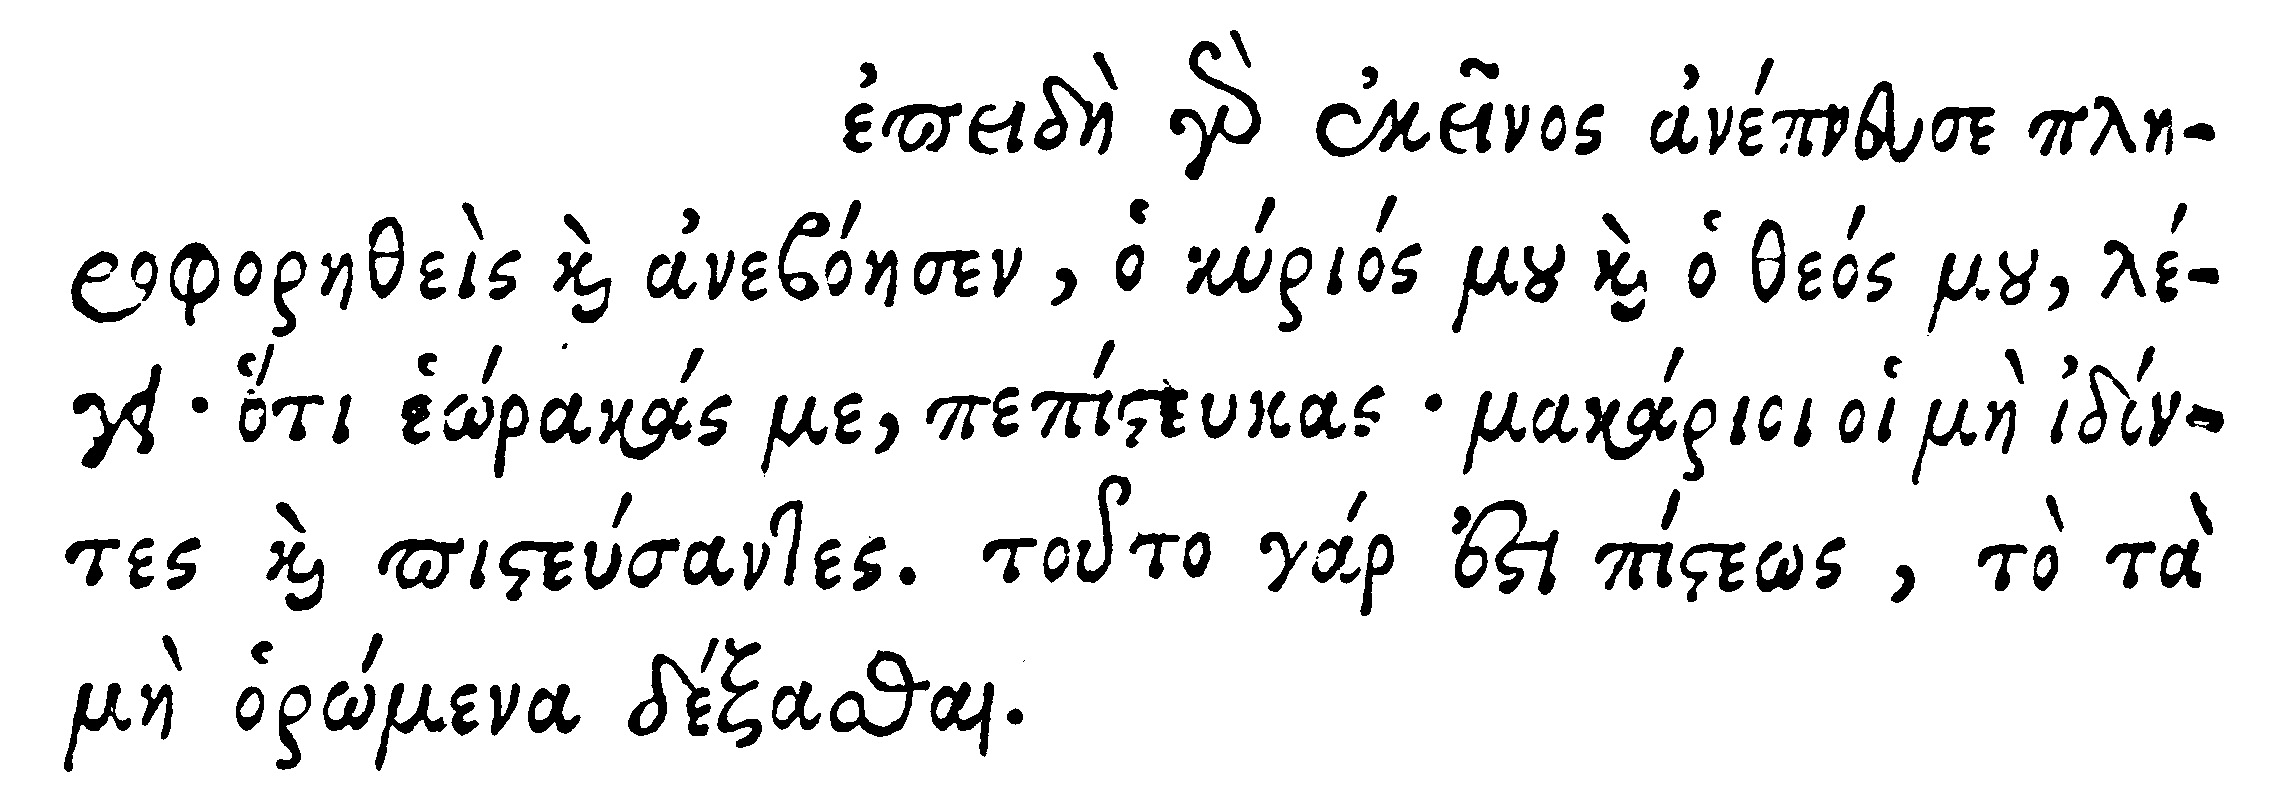 ἐπειδὴ γὰρ ἐκεῖνος ἀνέπνευσε πλη-
ροφορηθεὶς ϗ̀ ἀνεβόησεν, ὁ κύριός μου ϗ̀ ὁ θεός μου, λέ-
γει· ὅτι ἑώρακάς με, πεπίστευκας· μακάριοι οἱ μὴ ἰδόν-
τες ϗ̀ πιστεύσαντες. τοῦτο γάρ ἐστι πίστεως, τὸ τὰ
μὴ ὁρώμενα δέξασθαι.